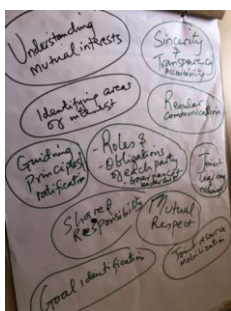 Understanding
mutual interests
Sincerity
&
Transparency
Accountability
Identifying areas
of interest
Regular
communication
Guiding
Principles/
ratification
- Roles &
- Obligations
of each party
Joint
Shared
Responsibility
Mutual
Respect
Goal identification
Joint resource
mobilization